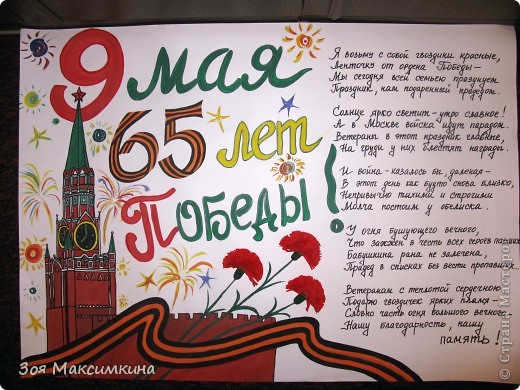 9 мая
65 лет
Победы!
Я возьму с собой гвоздики красные,
Ленточку от ордена Победы—
Мы сегодня всей семьею празднуем
Праздник, нам подаренный прадедом.
Солнце ярко светит-утро славное!
А в Москве войска идут парадом.
Ветераны в этот праздник главные,
На груди у них блестят награды.
И война-казалось бы, далекая—
В этот день как будто снова близко,
Непривычно тихими и строгими
Молча постоим у обелиска.
У огня бушующего вечного,
Что зажжен в честь всех героев павших
Бабушкина рана не залечена,
Прадед в списках без вести пропавших.
Ветеранам с теплотой сердечною
Подарю гвоздичек ярких пламя—
Словно часть огня большого вечного-
Нашу благодарность, нашу
память!
Зоя Максимкина
© Страна Мастеров